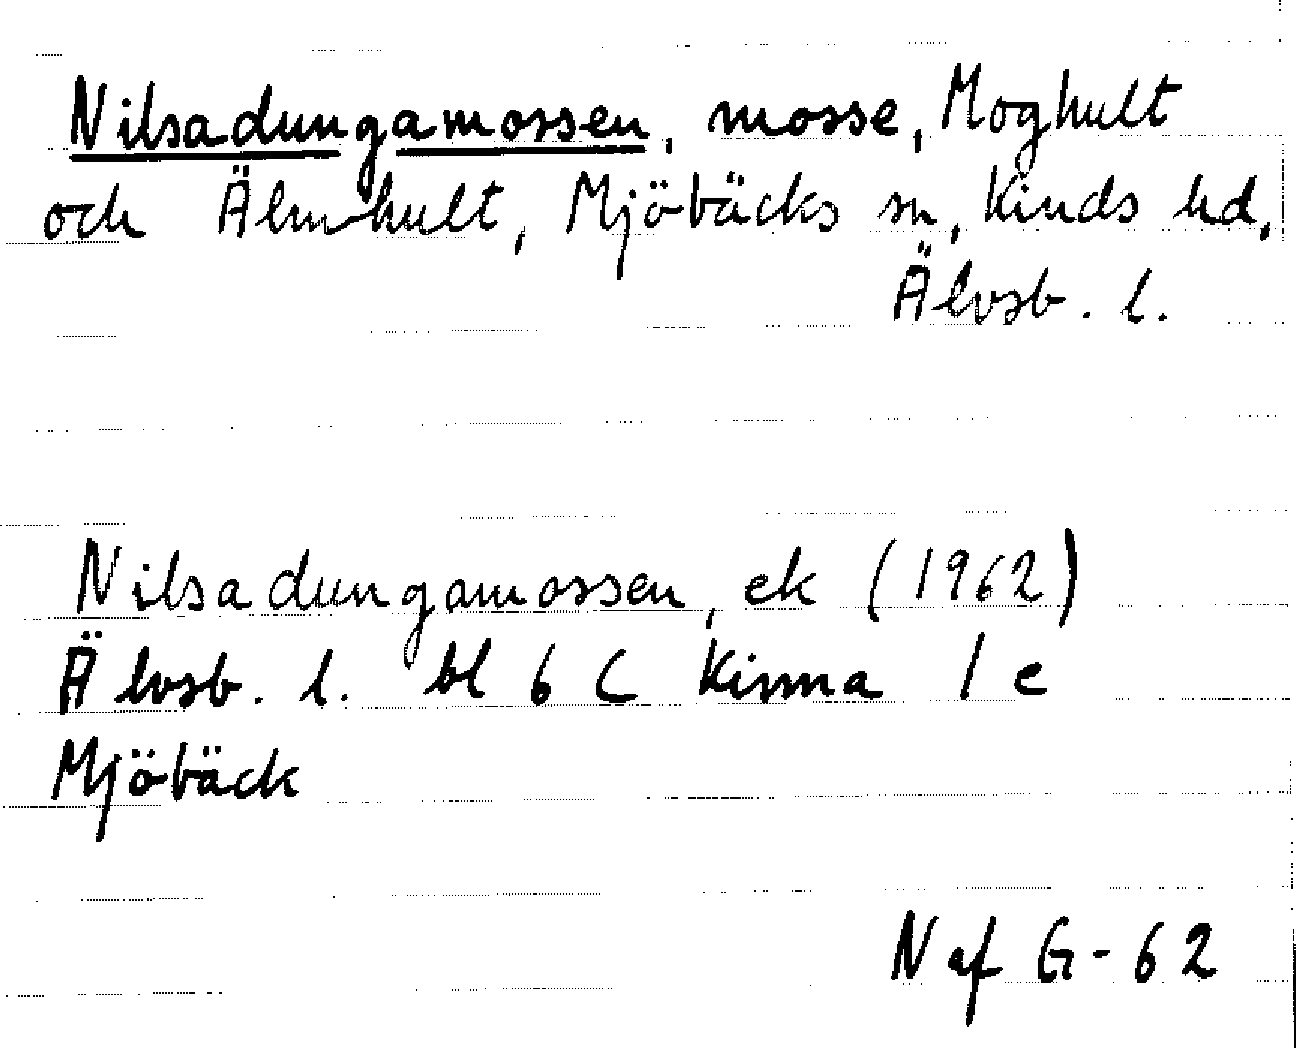 Nilsadungamossen, mosse, Moghult
och Älmhult, Mjöbäcks sn, Kinds hd,
Älvsb. l.
Nilsadungamossen, ek (1962)
Älvsb. l. bl 6 C Kinna 1 e
Mjöbäck
N af G-62